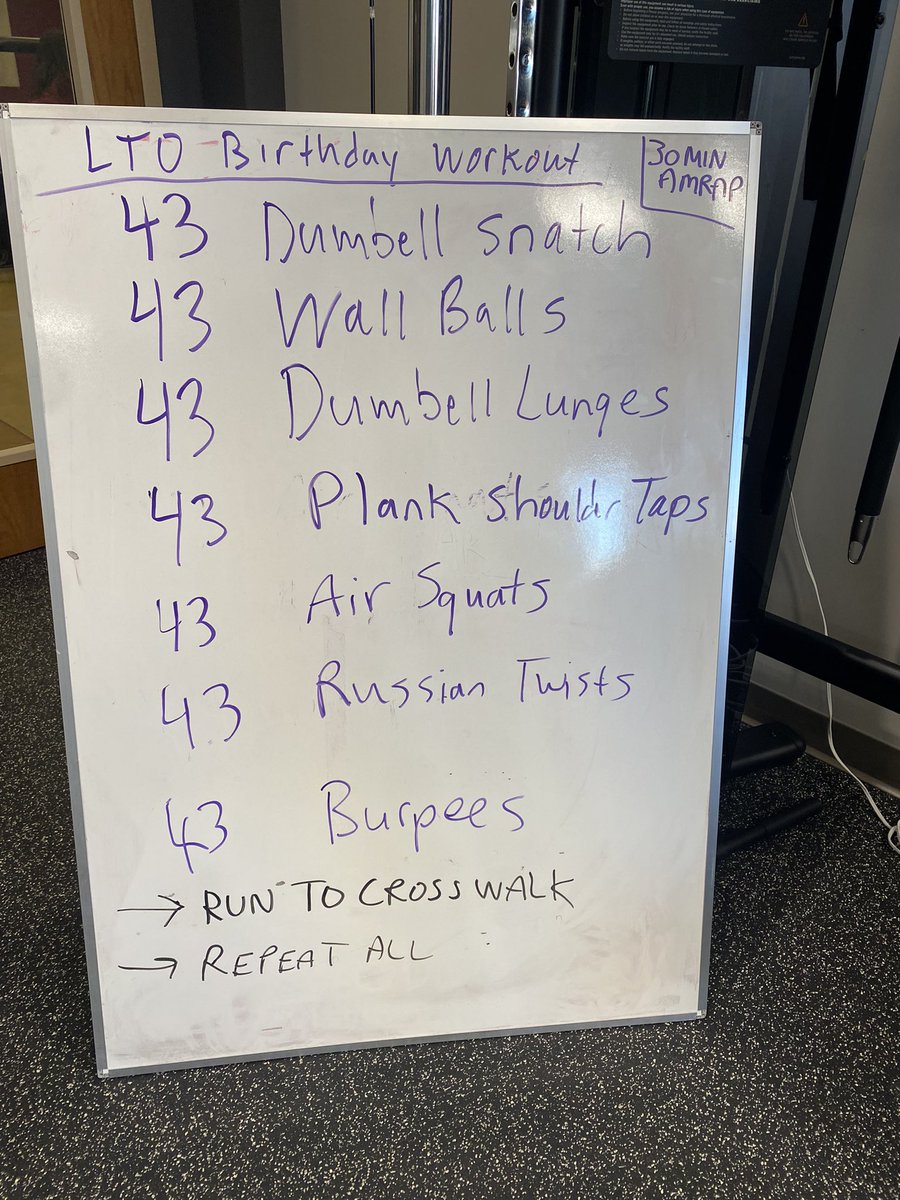 LTO Birthday Workout
30 MIN
AMRAP
43 Dumbell Snatch
43 Wall Balls
43 Dumbell Lunges
43 Plank Shouldr Taps
43 Air Squats
43 Russian Twists
43 Burpees
→ RUN TO CROSSWALK
→ REPEAT ALL